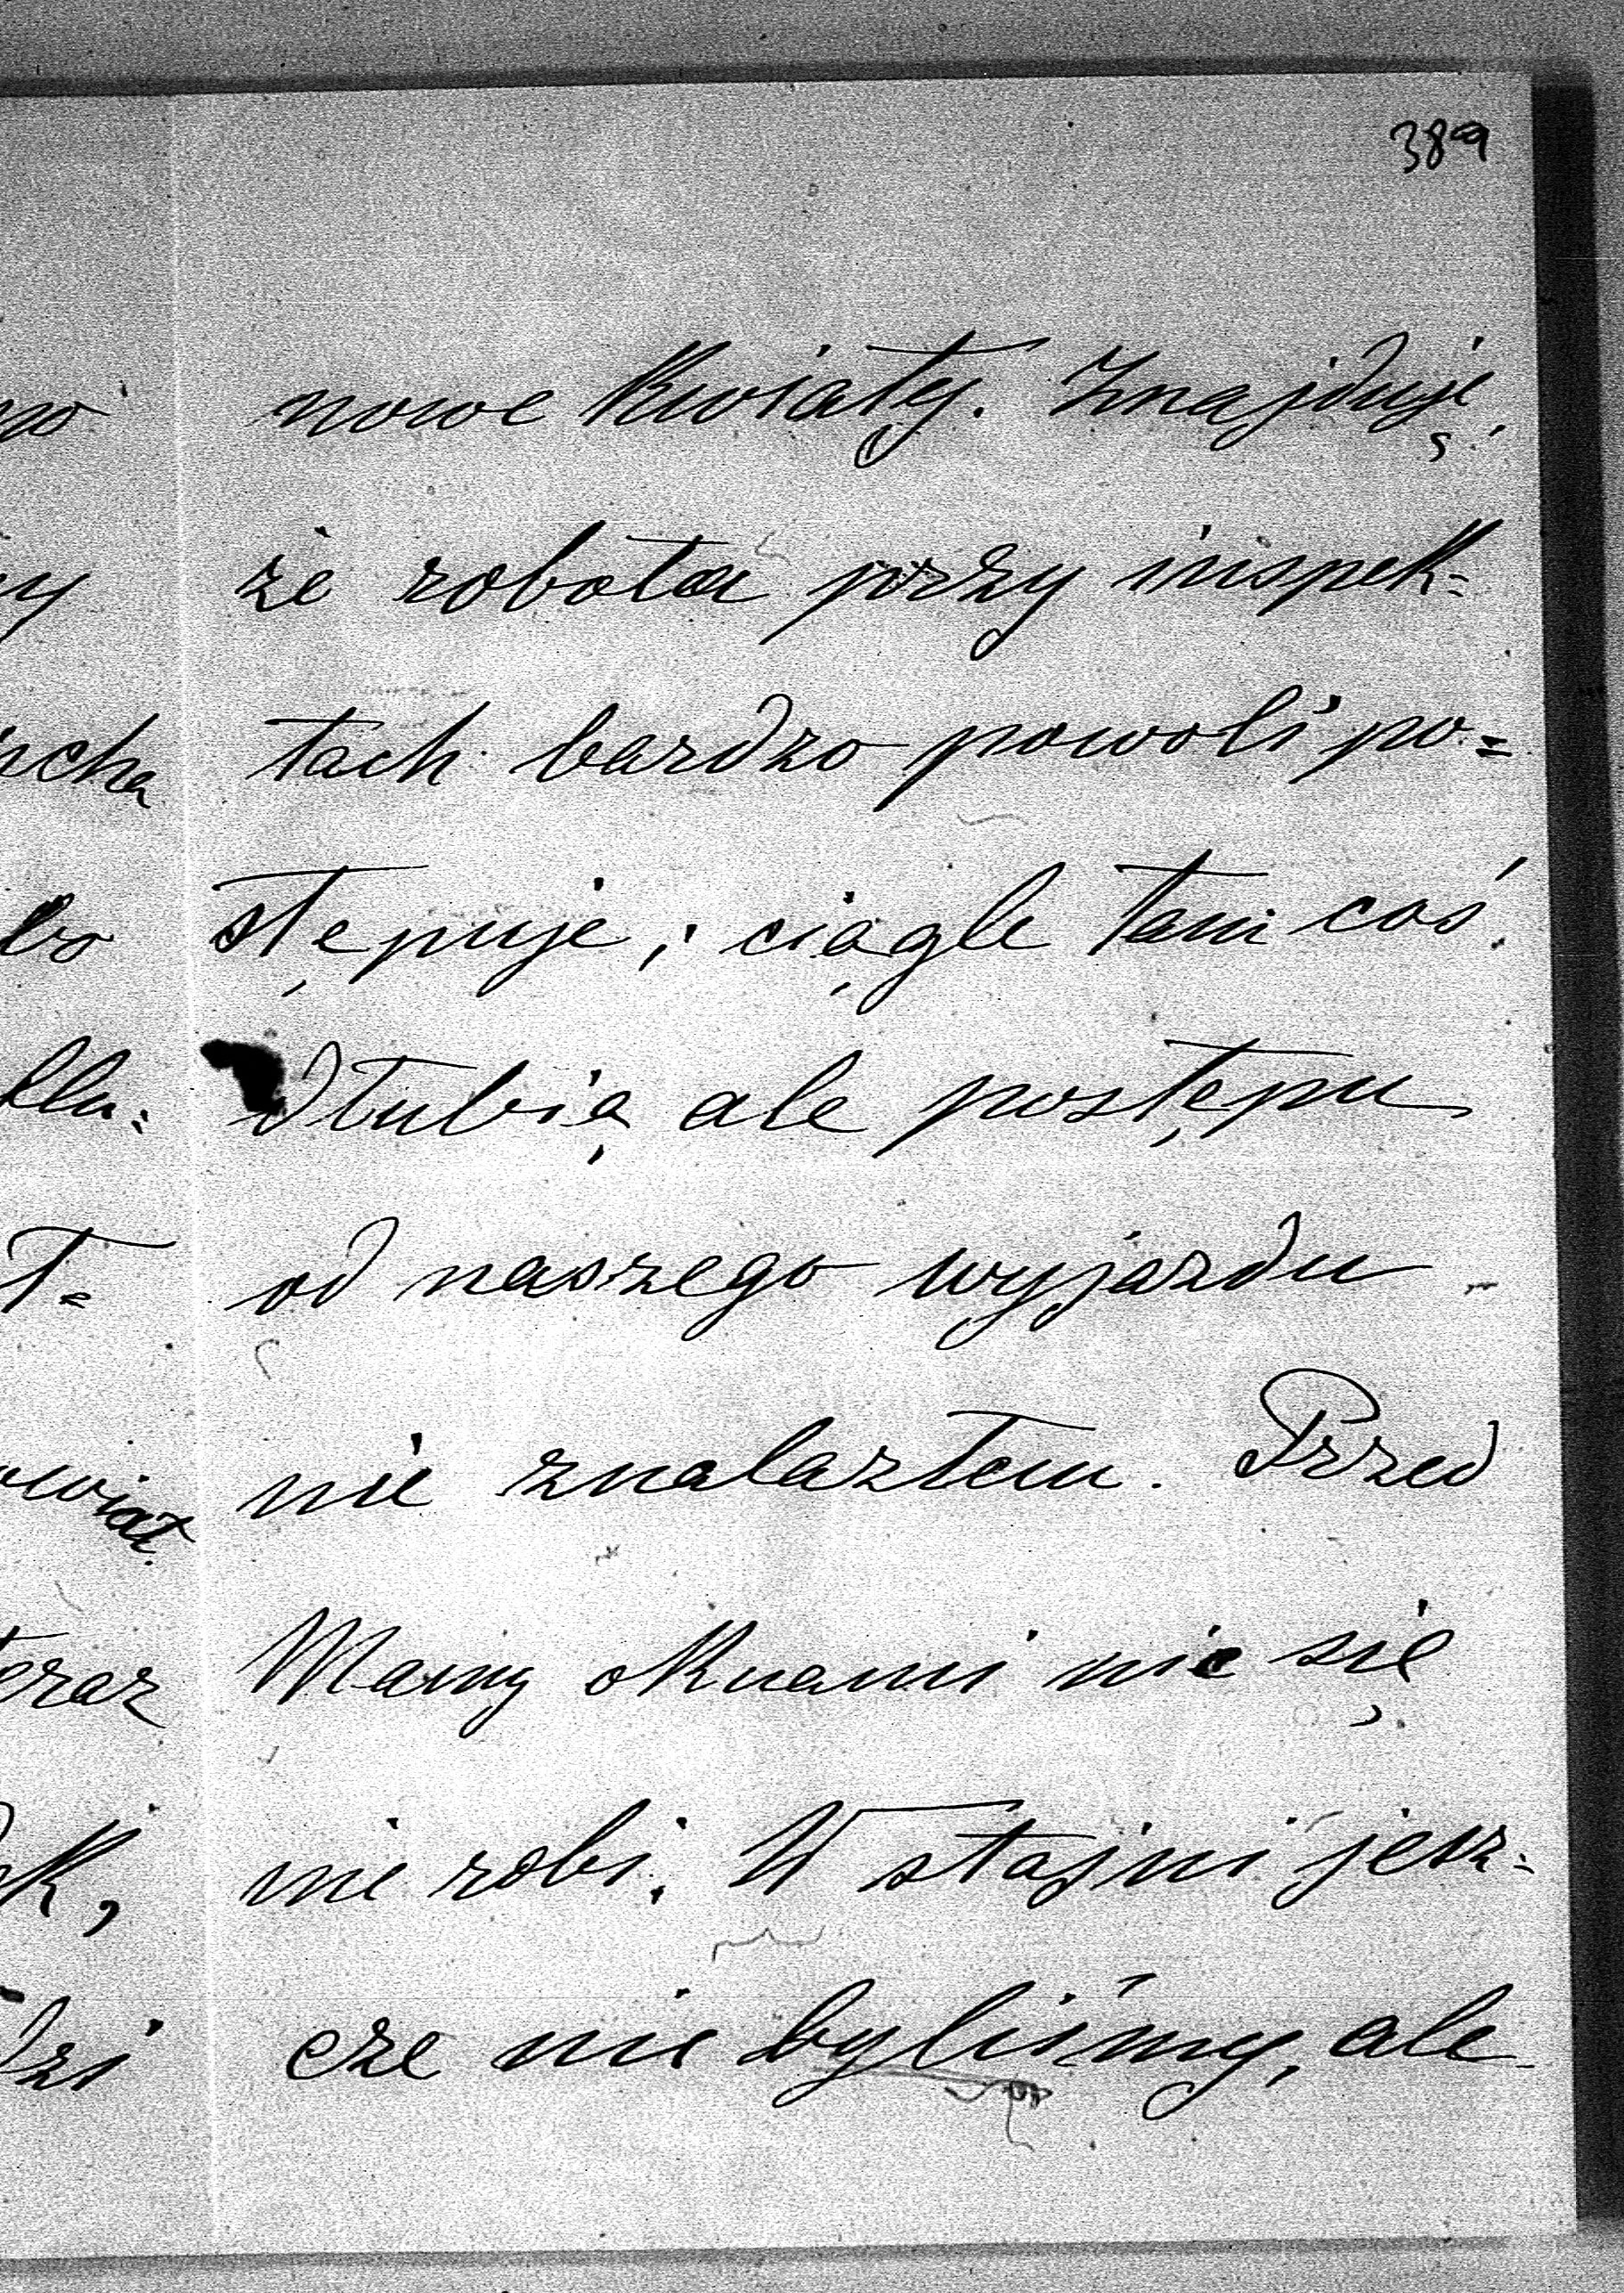 389
nowe kwiaty. Znajduję,
że robota przy inspek=
tach bardzo powoli po=
stępuje; ciągle tam coś
dłubią ale postępu
od naszego wyjazdu
nie znalazłem. Przed
Mamy oknami nic się
nie robi. W stajni jesz=
cze nie byliśmy, ale